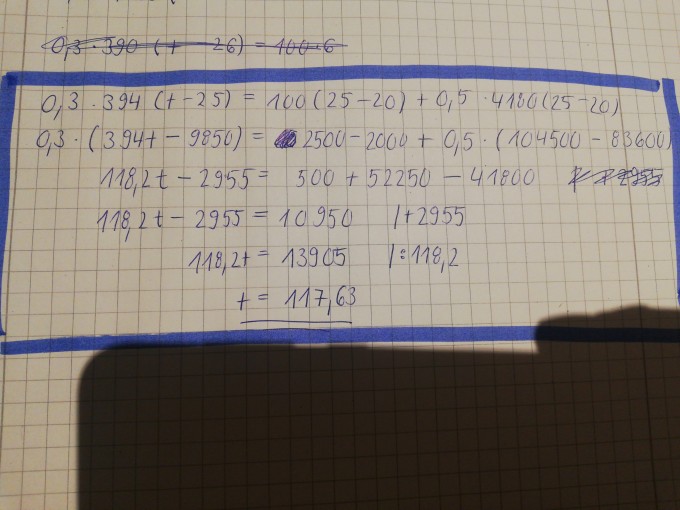 0,3 · 390 (t - 26) = 100 · 6
0,3 · 394 (t - 25) = 100 (25 - 20) + 0,5 · 4180 (25 - 20)
0,3 · (394t - 9850) = 2500 - 2000 + 0,5 · (104500 - 83600)
118,2t - 2955 = 500 + 52250 - 41800
118,2t - 2955 = 10950 /+2955
118,2t = 13905 /:118,2
t = 117,63